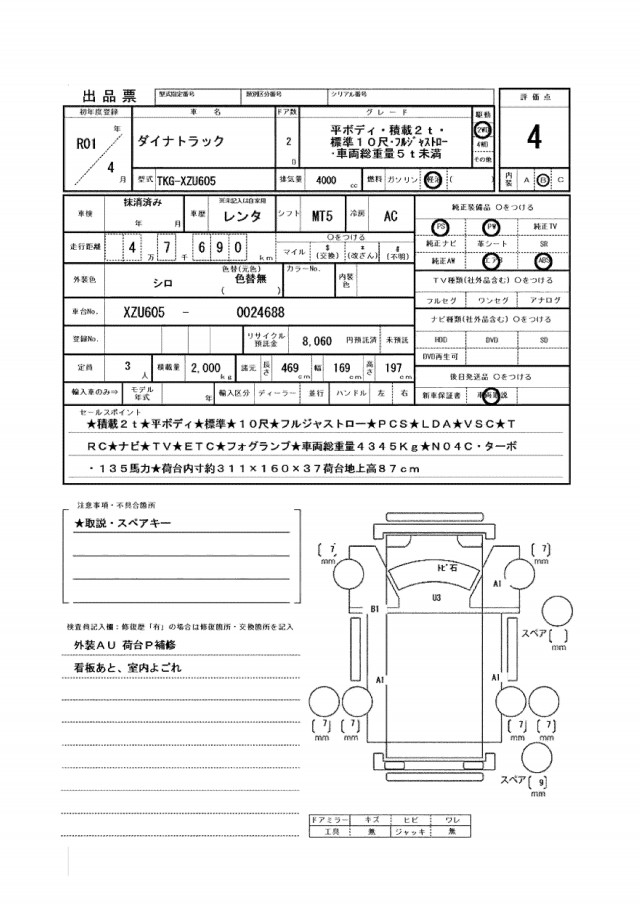 出品票 型式指定番号 類別区分番号 シリアル番号 評価点
初年度登録 車名 ドア数 グレード 駆動
R01 年 4 月 ダイナトラック 2 D 平ボディ・積載2t・
標準10尺・フルジャストロー
・車両総重量5t未満
2WD
4WD
その他
4
型式 TKG-XZU605 排気量 4000 cc 燃料 ガソリン 軽油 ( ) 内装 A B C
車検 抹消済み 年 月 車歴 ※未記入は自家用 レンタ シフト MT5 冷房 AC
純正装備品 〇をつける
PS PW 純正TV
純正ナビ 革シート SR
純正AW エアB ABS
走行距離 4万 7千 690 km 〇をつける
マイル $(交換) *(改ざん) #(不明)
外装色 シロ 色替(元色) 色替無 ( ) カラーNo. 内装色
TV種類(社外品含む) 〇をつける
フルセグ ワンセグ アナログ
車台No. XZU605 - 0024688
ナビ種類(社外品含む) 〇をつける
HDD DVD SD
DVD再生可
登録No. リサイクル預託金 8,060 円預託済 未預託
定員 3 人 積載量 2,000 kg 諸元 長さ 469 cm 幅 169 cm 高さ 197 cm
後日発送品 〇をつける
輸入車のみ⇒ モデル年式 年 輸入区分 ディーラー 並行 ハンドル 左 右 新車保証書 車両取説
セールスポイント
★積載2t★平ボディ★標準★10尺★フルジャストロー★PCS★LDA★VSC★T
RC★ナビ★TV★ETC★フォグランプ★車両総重量4345Kg★N04C・ターボ
・135馬力★荷台内寸約311×160×37荷台地上高87cm
注意事項・不具合箇所
★取説・スペアキー
検査員記入欄:修復歴「有」の場合は修復箇所・交換箇所を記入
外装AU 荷台P補修
看板あと、室内よごれ
(7) mm
(7) mm
トビ石
U3
A1
B1
スペア( ) mm
A1
A1
(7) mm
(7) mm
(7) mm
(7) mm
スペア(9) mm
ドアミラー キズ ヒビ ワレ
工具 無 ジャッキ 無